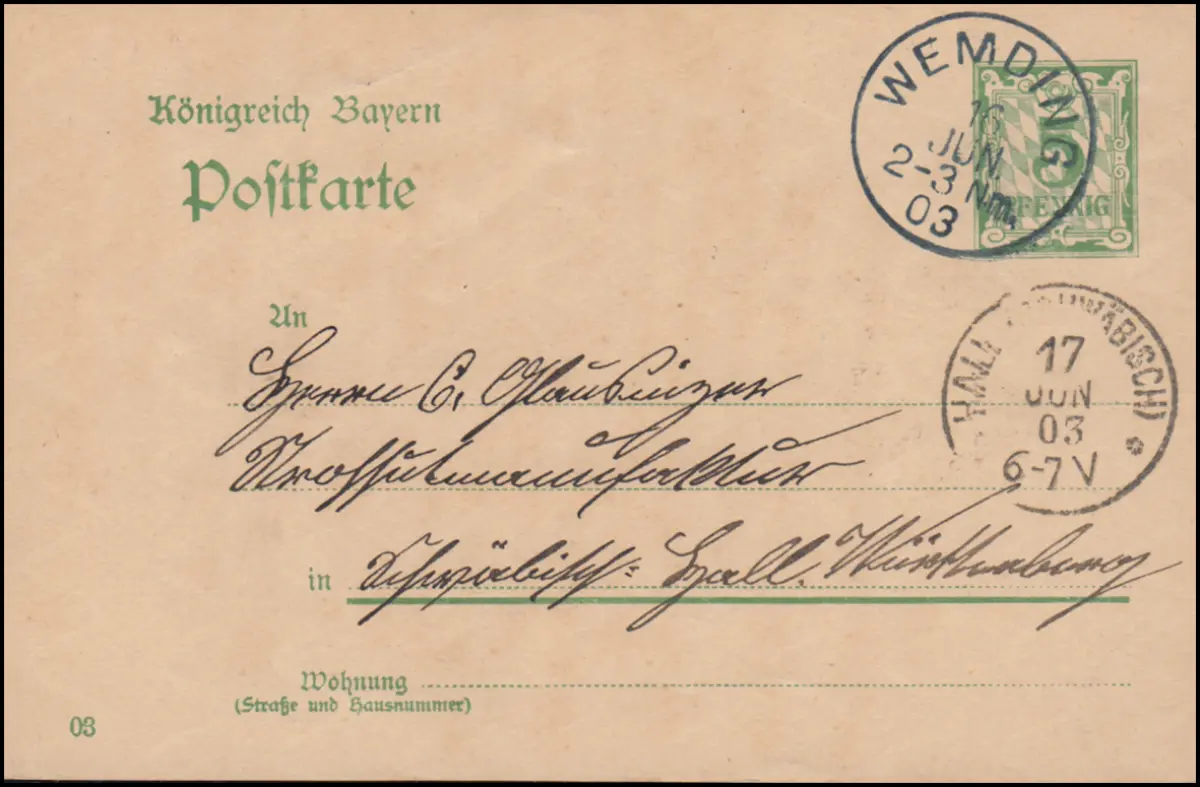 Königreich Bayern
Postkarte
WEMDING
16
JUN.
2-3 Nm.
03
5
PFENNIG
HALL (SCHWÄBISCH)
17
JUN
03
6-7 V
An
Herrn C.
Strohhutmanufaktur
in Schwäbisch-Hall. Württemberg
Wohnung
(Straße und Hausnummer)
03